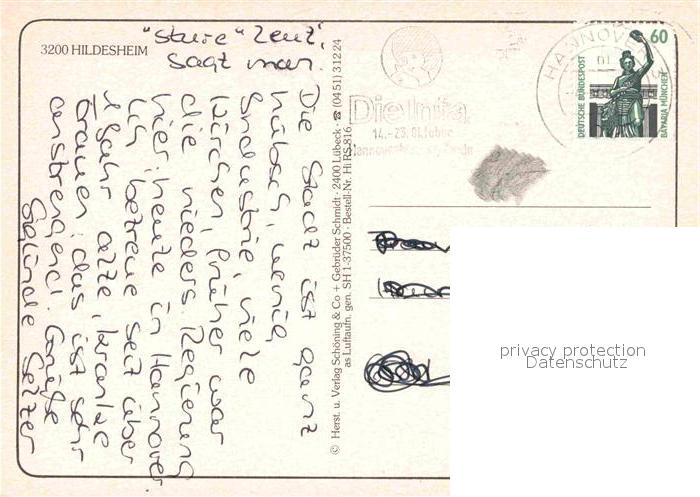 3200 HILDESHEIM
"sture" Leut',
sagt man.
Die Stadt ist ganz
hübsch, wenig
Industrie, viele
Kirchen, früher war
die nieders. Regierung
hier, heute in Hannover
Ich betreue seit über
1 Jahr alte, kranke
Frauen, das ist sehr
anstrengend. Grüße
© Herst. u. Verlag Schöning & Co + Gebrüder Schmidt · 2400 Lübeck · ☎ (0451) 31224
SH 1-37500 · Bestell-Nr. Hi RS 816
as Luftaufn. gen.
HANNOVER
Die Infa
14.-23. Oktober
60
DEUTSCHE BUNDESPOST
BAVARIA MÜNCHEN
privacy protection
Datenschutz